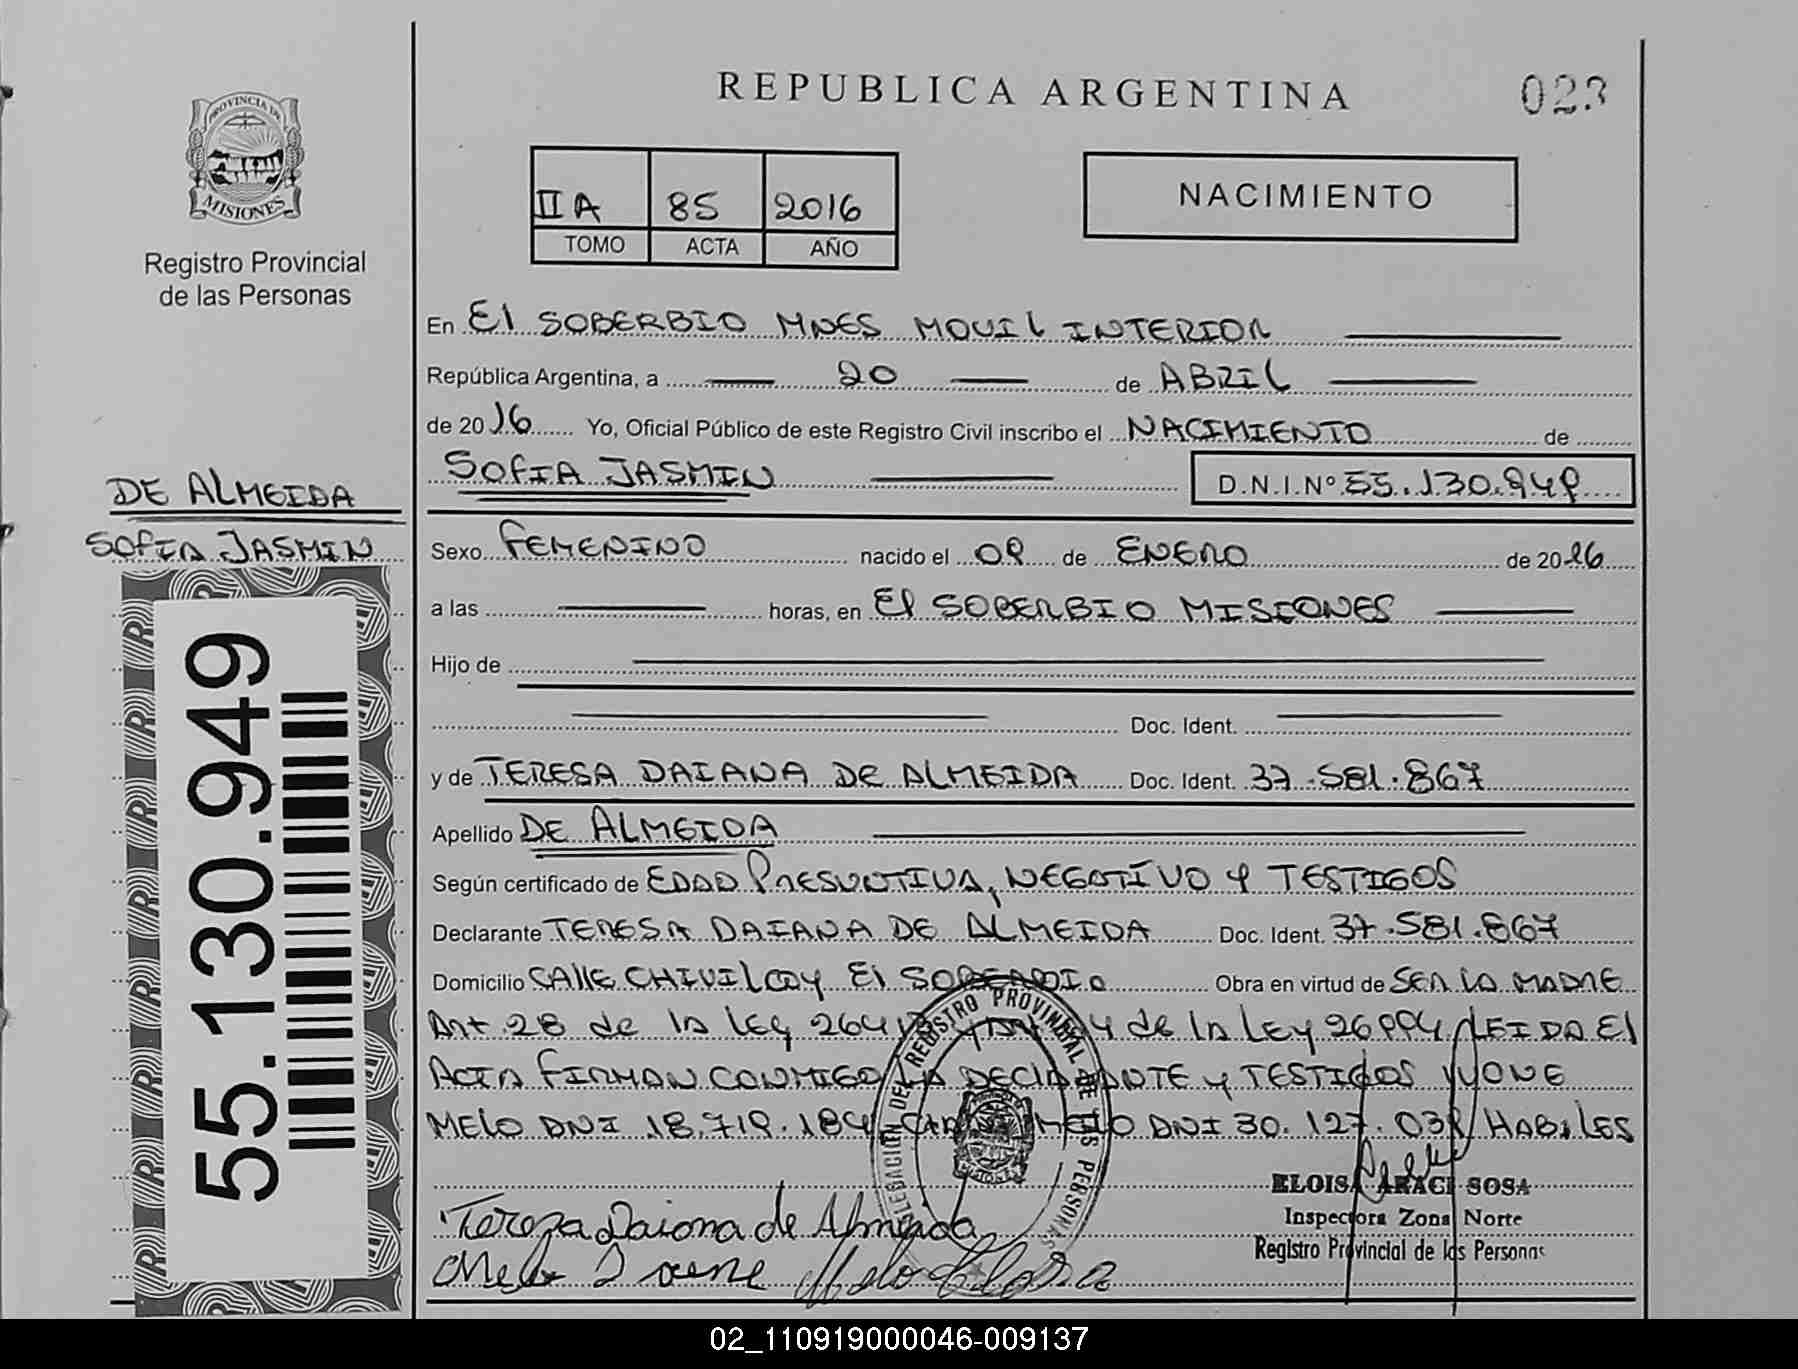 REPUBLICA ARGENTINA
023
PROVINCIA DE MISIONES
Registro Provincial
de las Personas
IIA 85 2016
TOMO ACTA AÑO
NACIMIENTO
En El SOBERBIO MNES MOVIL INTERIOR
República Argentina, a 20 de ABRIL
de 2016 Yo, Oficial Público de este Registro Civil inscribo el NACIMIENTO de
SOFIA JASMIN D.N.I.Nº 55.130.949
DE ALMEIDA
SOFIA JASMIN
Sexo FEMENINO nacido el 09 de ENERO de 2016
a las horas, en El SOBERBIO MISIONES
Hijo de
Doc. Ident.
y de TERESA DAIANA DE ALMEIDA Doc. Ident. 37.581.867
Apellido DE ALMEIDA
Según certificado de EDAD PRESUNTIVA, NEGATIVO Y TESTIGOS
Declarante TERESA DAIANA DE ALMEIDA Doc. Ident. 37.581.867
Domicilio CALLE CHIVILCOY El SOBERBIO Obra en virtud de SER LA MADRE
Art 28 de la ley 26413 y Art 4 de la Ley 26994 LEIDA El
ACTA FIRMAN CONMIGO LA DECLARANTE y TESTIGOS
MELO DNI 18.719.184 MELO DNI 30.127.039 HABILES
55.130.949
DELEGACION DEL REGISTRO PROVINCIAL DE LAS PERSONAS
Teresa Daiana de Almeida
Melo
Melo
ELOISA ARACI SOSA
Inspectora Zona Norte
Registro Provincial de las Personas
02_110919000046-009137